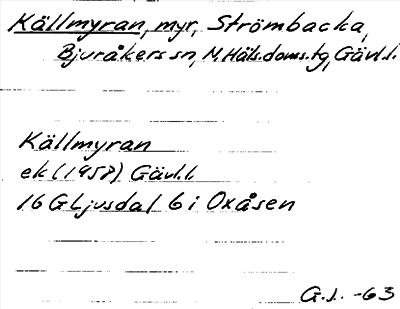 Källmyran, myr, Strömbacka,
Bjuråkers sn, N. Häls. doms. tg, Gävl. l.
Källmyran
ek (1958) Gävl. l.
16 G Ljusdal 6 i Oxåsen
G. J. -63